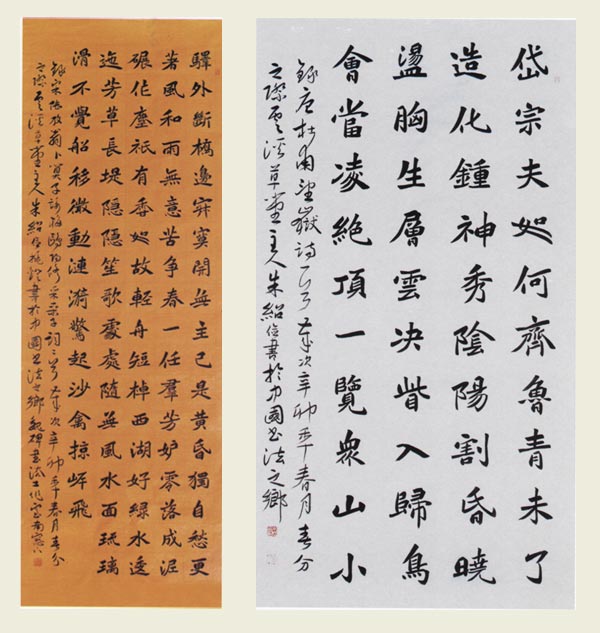 岱宗夫如何齊魯青未了
造化鍾神秀陰陽割昏曉
盪胸生層雲決眥入歸鳥
會當凌絕頂一覽衆山小
錄唐杜甫望嶽詩一首歲次辛卯年春月春分
之際雲溪草堂主人朱紹信書於中國書法之鄉
驛外斷橋邊寂寞開無主已是黃昏獨自愁更
著風和雨無意苦爭春一任羣芳妒零落成泥
碾作塵祇有香如故輕舟短棹西湖好綠水逶
迤芳草長堤隱隱笙歌處處隨無風水面琉璃
滑不覺船移微動漣漪驚起沙禽掠岸飛
錄宋陸放翁卜算子詠梅歐陽修采桑子詞二首歲次辛卯年春月春分
之際雲溪草堂主人朱紹信書於中國書法之鄉魏碑書法工作室南窗